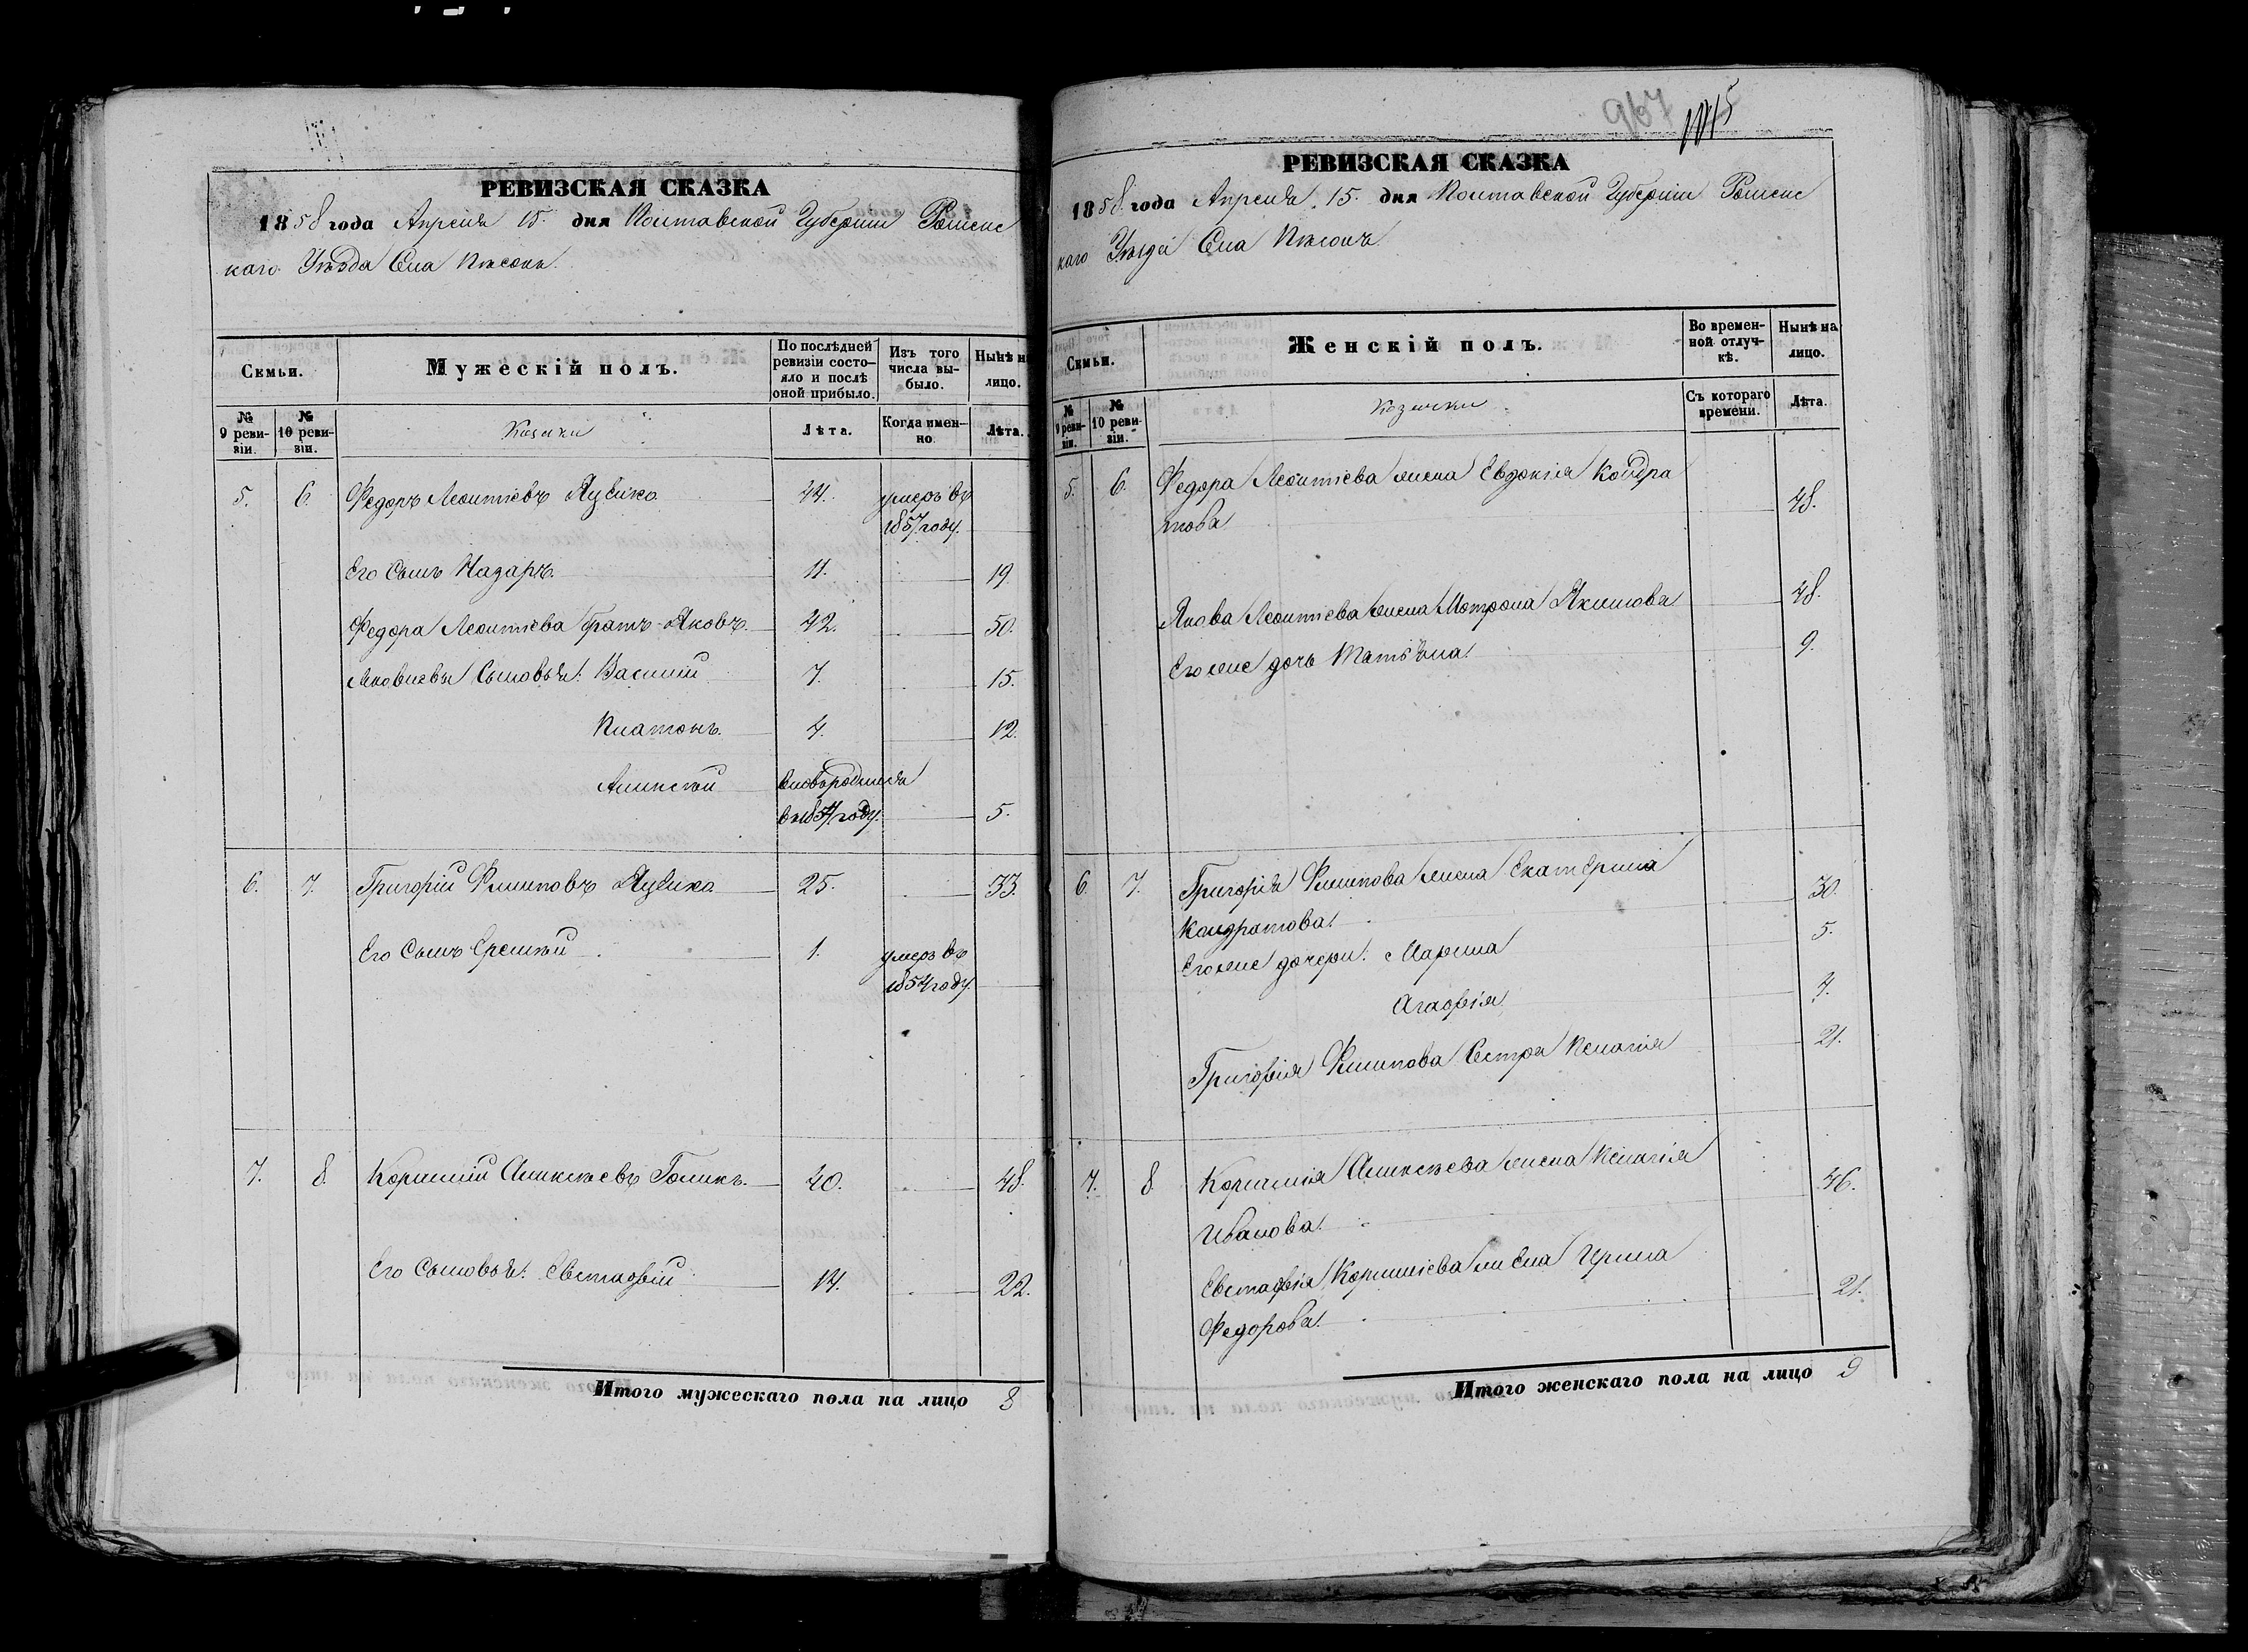 967
1015
РЕВИЗСКАЯ СКАЗКА
1858 года Апреля 15. дня Полтавской Губернии Роменс
каго Уѣзда Села Пѣсокъ.
Семьи.
Мужескій полъ.
По послѣдней ревизіи состояло и послѣ оной прибыло.
Изъ того числа выбыло.
Нынѣ на лицо.
№ 9 ревизіи.
№ 10 ревизіи.
Козаки
Лѣта.
Когда именно.
Лѣта.
5. 6. Федоръ Леонтіевъ Яцыка 44. умеръ въ
1857 году.
Его Сынъ Назаръ. 11. 19.
Федора Леонтіева братъ Яковъ. 42. 50.
Яковлевы Сыновья: Василій 7. 15.
Платонъ. 4. 12.
Алексѣй вновьродился
въ 1854 году. 5.
6. 7. Григорій Филиповъ Яцыка 25. 33.
Его Сынъ Еремѣй 1. умеръ въ
1854 году.
7. 8. Корнилій Алексѣевъ Голикъ. 40. 48.
Его Сыновья: Евстафій 14. 22.
Итого мужескаго пола на лицо 8
РЕВИЗСКАЯ СКАЗКА
1858 года Апреля 15. дня Полтавской Губерніи Роменс
каго Уѣзда Села Пѣсокъ.
Семьи.
Женскій полъ.
Во временной отлучкѣ.
Нынѣ на лицо.
№ 9 ревизіи.
№ 10 ревизіи.
Козачки
Съ котораго времени.
Лѣта.
5. 6. Федора Леонтіева жена Евдокія Кондра
това 48.
Якова Леонтіева жена Мотрона Якимова 48.
Его же дочь Татьяна. 9.
6. 7. Григорія Филипова жена Екатерина
Кондратова. 30.
Его же дочери: Марина 5.
Агафія
Григорія Филипова Сестра Пелагія 21.
7. 8. Корнилія Алексѣева жена Пелагія
Иванова. 46.
Евстафія Корниліева жена Ирина
Федорова. 21.
Итого женскаго пола на лицо 9